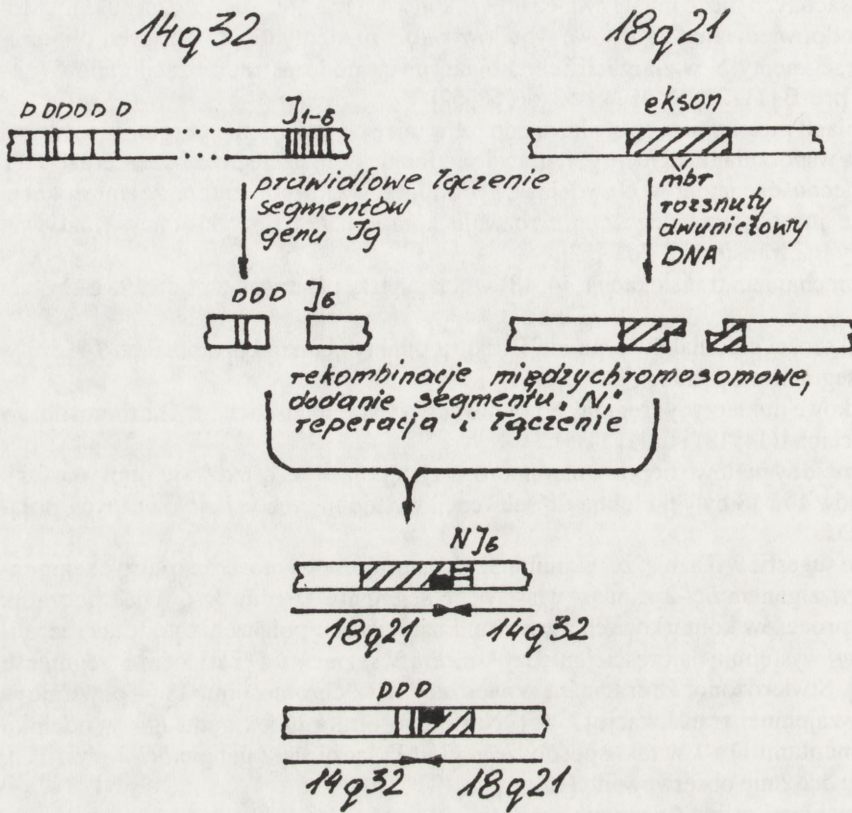 14q32
18q21
D D D D D D
J1-6
ekson
prawidłowe łączenie
segmentów
genu Jg
mbr
rozsnuty
dwuniciowy
DNA
D D D
J6
rekombinacje międzychromosomowe,
dodanie segmentu „N,"
reperacja i łączenie
N J6
18q21
14q32
D D D
14q32
18q21